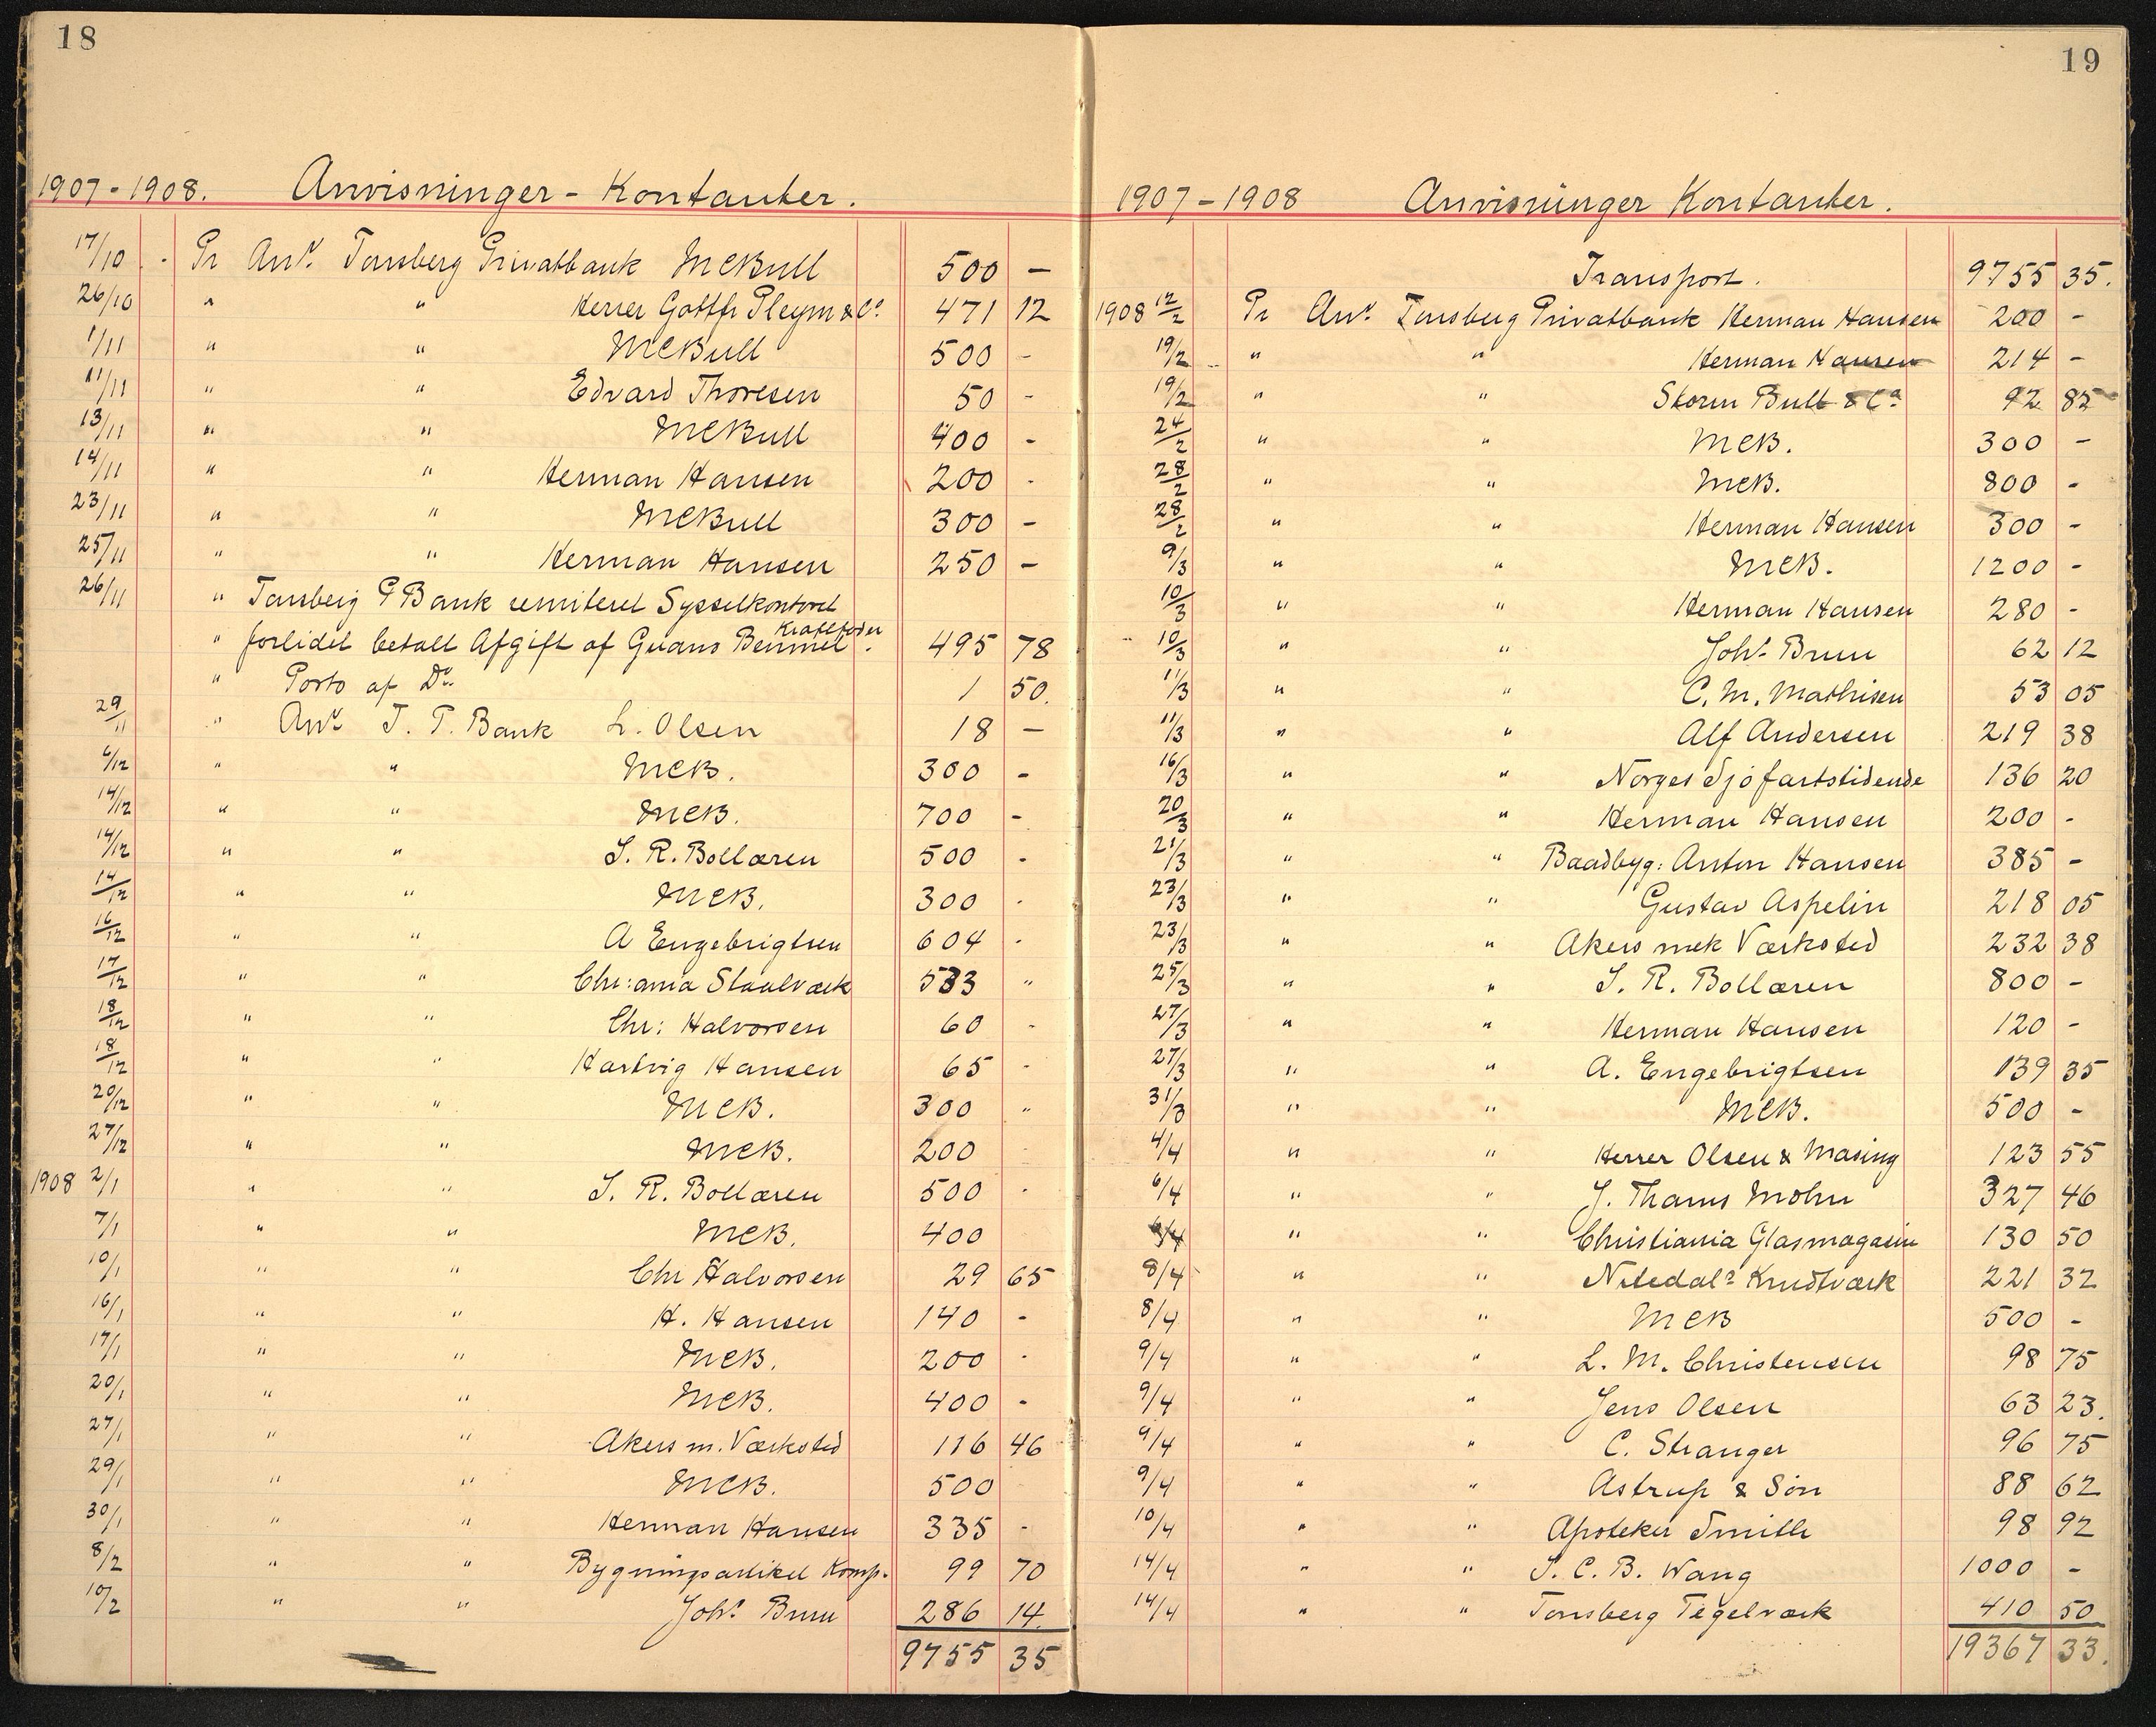 18
1907-1908. Anvisninger - Kontanter.
17/10 Pr Anv. Tønsberg Privatbank MCBull 500 —
26/10 " " Herrer Gottfr Pleym & Co. 471 12
1/11 " " MCBull 500 -
11/11 " " Edvard Thoresen 50 -
13/11 " " MCBull 400 -
14/11 " " Herman Hansen 200 -
23/11 " " MCBull 300 -
25/11 " " Herman Hansen 250 -
26/11 " Tønsberg P Bank remiteret Sysselkontoret
Kraftfoder
" forlidet betalt Afgift af Guano Benmel. 495 78
" Porto af Do. 1 50.
29/11 " Anv. T. P. Bank L. Olsen 18 —
6/12 " " MCB. 300 -
14/12 " " MCB. 700 -
14/12 " " S. R. Bollæren 500 -
14/12 " " MCB. 300 -
16/12 " " A Engebrigtsen 604 -
17/12 " " Chr:ania Staalværk 533 "
18/12 " " Chr: Halvorsen 60 -
18/12 " " Hartvig Hansen 65 -
20/12 " " MCB. 300 "
27/12 " " MCB. 200 -
1908 2/1 " " S. R. Bollæren 500 -
7/1 " " MCB. 400
10/1 " " Chr Halvorsen 29 65
16/1 " " H. Hansen 140 -
17/1 " " MCB. 200 -
20/1 " " MCB. 400 -
27/1 " " Akers m. Værksted 116 46
29/1 " " MCB. 500
30/1 " " Herman Hansen 335 -
8/2 " " Bygningsartikel Komp. 99 70
10/2 " " Johs Bruu 286 14.
9755 35
19
1907-1908 Anvisninger Kontanter.
Transport. 9755 35.
1908 12/2 Pr Anv. Tønsberg Privatbank Herman Hansen 200 -
19/2 " " Herman Hansen 214 -
19/2 " " Storm Bull & Co 92 85
24/2 " " MCB. 300 -
28/2 " " MCB. 800 -
28/2 " " Herman Hansen 300 -
9/3 " " MCB. 1200 -
10/3 " " Herman Hansen 280 -
10/3 " " Johs Bruu 62 12
11/3 " " C. M. Mathisen 53 05
11/3 " " Alf Andersen 219 38
16/3 " " Norges Sjøfartstidende 136 20
20/3 " " Herman Hansen 200 -
21/3 " " Baadbyg: Anton Hansen 385 -
23/3 " " Gustav Aspelin 218 05
23/3 " " Akers mek Værksted 232 38
25/3 " " S. R. Bollæren 800 -
27/3 " " Herman Hansen 120 -
27/3 " " A. Engebrigtsen 139 35
31/3 " " MCB. 500 -
4/4 " " Herrer Olsen & Masing 123 55
6/4 " " J. Thams Mohn 327 46
" " Christiania Glasmagasin 130 50
8/4 " " Nitedals Krudtværk 221 32
8/4 " " MCB 500 -
9/4 " " L. M. Christensen 98 75
9/4 " " Jens Olsen 63 23.
9/4 " " C. Stranger 96 75
9/4 " " Astrup & Søn 88 62
10/4 " " Apoteker Smith 98 92
14/4 " " S. C. B. Wang 1000 -
14/4 " " Tønsberg Tegelværk 410 50
19367 33.